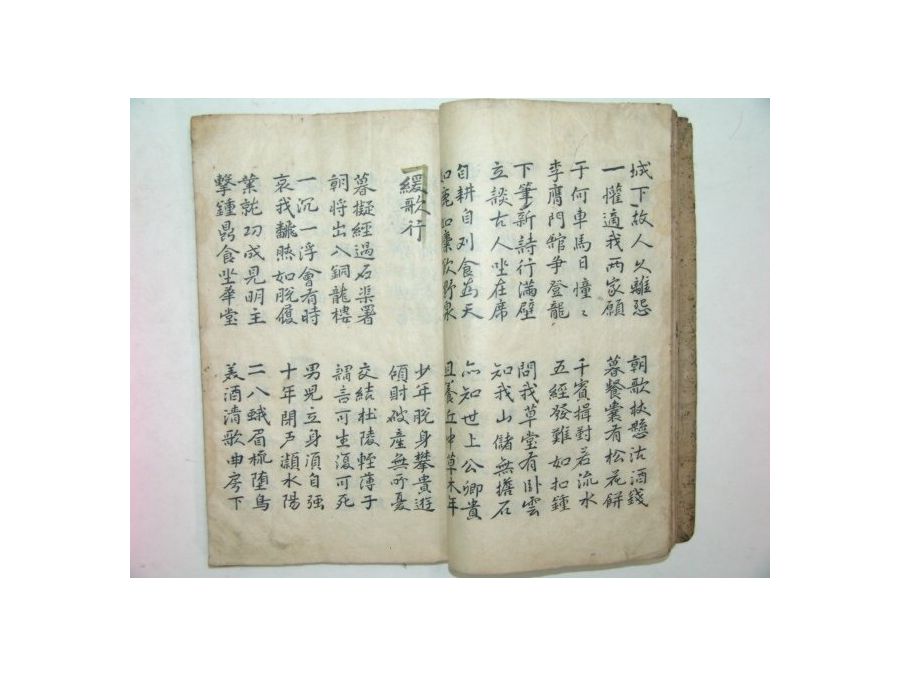 城下故人久離怨
一懽適我两家願
朝歌杖懸沽酒錢
暮餐囊有松花餅
于何車馬日憧〻
李膺門館爭登龍
千賓揖對若流水
五經發難如扣鍾
下筆新詩行滿壁
立談古人坐在席
問我草堂有卧雲
知我山儲無擔石
自耕自刈食為天
如鹿如麋飲野泉
亦知世上公卿貴
且養丘中草木年
緩歌行
少年脫身攀貴遊
傾財破產無所憂
暮擬經過石渠署
朝將出入銅龍樓
交結杜陵輕薄子
謂言可生復可死
一沉一浮會有時
哀我飜然如脫履
男兒立身須自强
十年閉户潁水陽
業就功成見明主
擊鍾鼎食坐華堂
二八蛾眉梳墮烏
美酒清歌曲房下